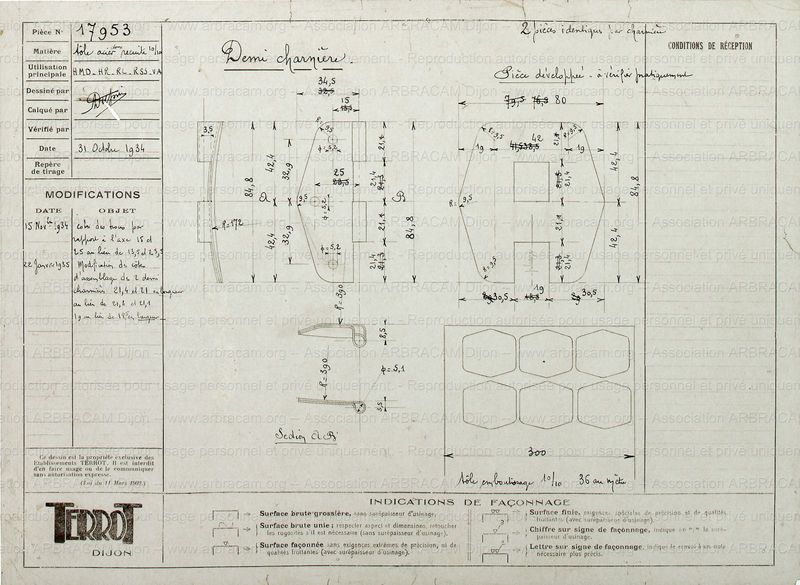 Pièce N° 17953
Matière tôle acier recuite 10/10
Utilisation principale HMD_HR_RL_RSS_VA
Dessiné par
Calqué par
Vérifié par
Date 31 Octobre 1934
Repère de tirage
MODIFICATIONS
DATE OBJET
15 Nov. 1934 cotes des trous par
rapport à l'axe 15 et
25 au lieu de 13,5 et 23,5
22 Janvier 1935 Modification des côtes
d'assemblage de 2 demi
charnières 21,4 et 21 en longueur
au lieu de 21,2 et 21,1
19 au lieu de 18 en largeur
Ce dessin est la propriété exclusive des
Etablissements TERROT. Il est interdit
d'en faire usage ou de le communiquer
sans autorisation expresse.
(Loi du 11 Mars 1902)
TERROT
DIJON
Demi charnière.
2 pièces identiques par charnière
CONDITIONS DE RÉCEPTION
Pièce developpée - à vérifier pratiquement
34,5
15
3,5
84,8
42,4
32,9
42,4
32,9
R=172
25
9,5
φ=5,2
φ=5,2
21,4
21,4
84,8
A
B
80
42
19
19
21,4
42,4
42,4
84,8
30,5
19
30,5
R=390
8,5
φ=5,1
R=390
5,5
Section AB
300
tôle emboutissage 10/10 36 au mètre
INDICATIONS DE FAÇONNAGE
Surface brute grossière, sans surépaisseur d'usinage.
Surface brute unie; respecter aspect et dimensions, retoucher
les rugosités s'il est nécessaire (sans surépaisseur d'usinage).
Surface façonnée sans exigences extrêmes de précision, ni de
qualités frottantes (avec surépaisseur d'usinage).
Surface finie, exigences spéciales de précision et de qualités
frottantes (avec surépaisseur d'usinage).
Chiffre sur signe de façonnage, indique en m/m la suré-
paisseur d'usinage.
Lettre sur signe de façonnage, indique le renvoi à un note
nécessaire plus précis.
www.arbracam.org – Association ARBRACAM Dijon – Reproduction autorisée pour usage personnel et privé uniquement